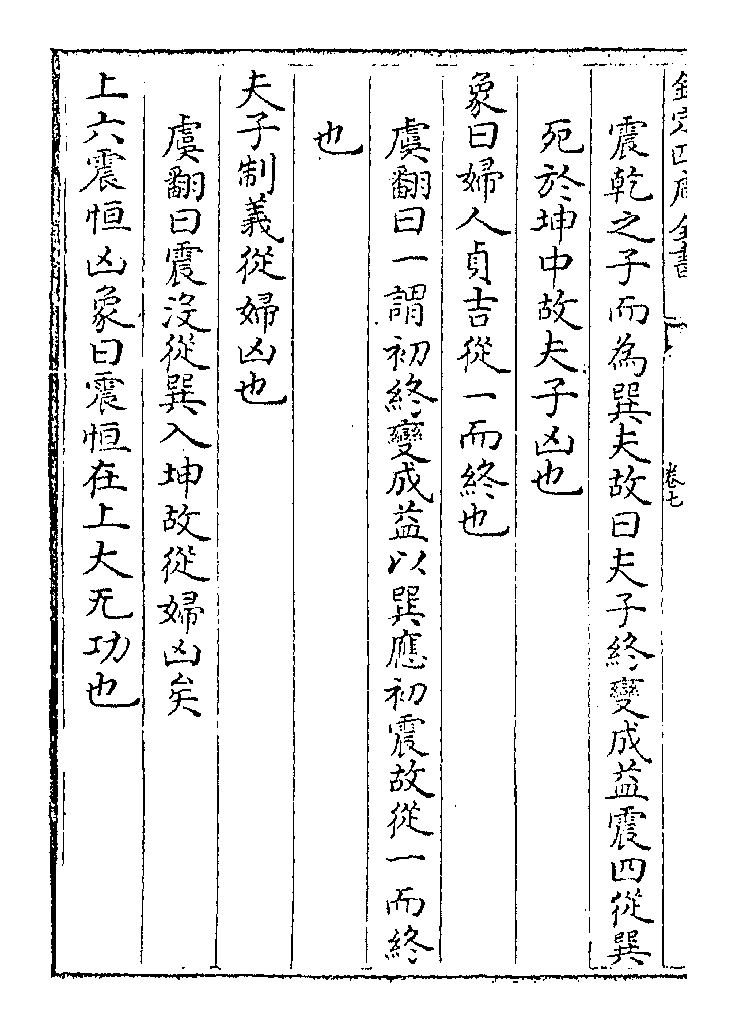 欽定四庫全書
卷七
震乾之子而為巽夫故曰夫子終變成益震四從巽
死於坤中故夫子凶也
象曰婦人貞吉從一而終也
虞翻曰一謂初終變成益以巽應初震故從一而終
也
夫子制義從婦凶也
虞翻曰震沒從巽入坤故從婦凶矣
上六震恒凶象曰震恒在上大无功也